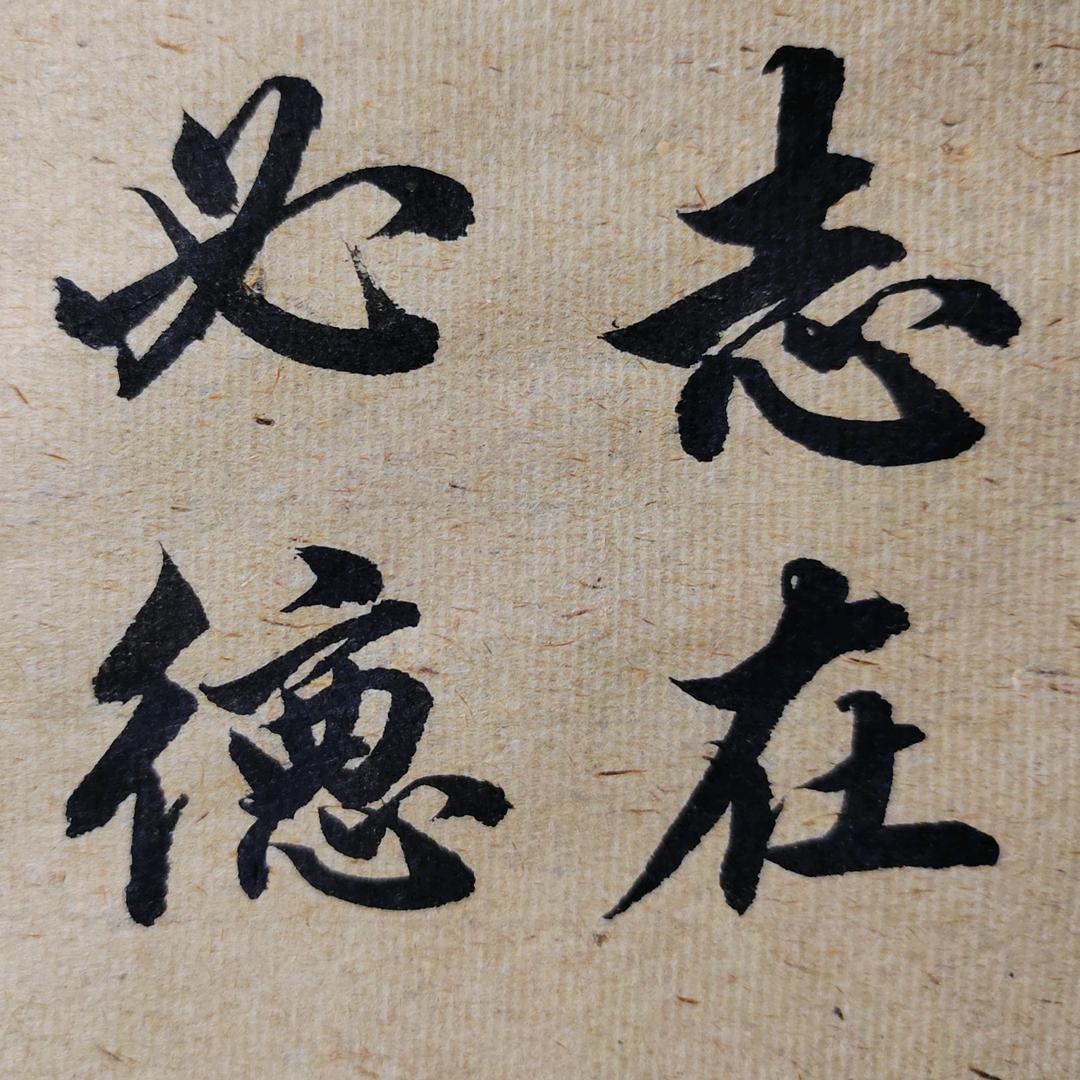 志在
必德